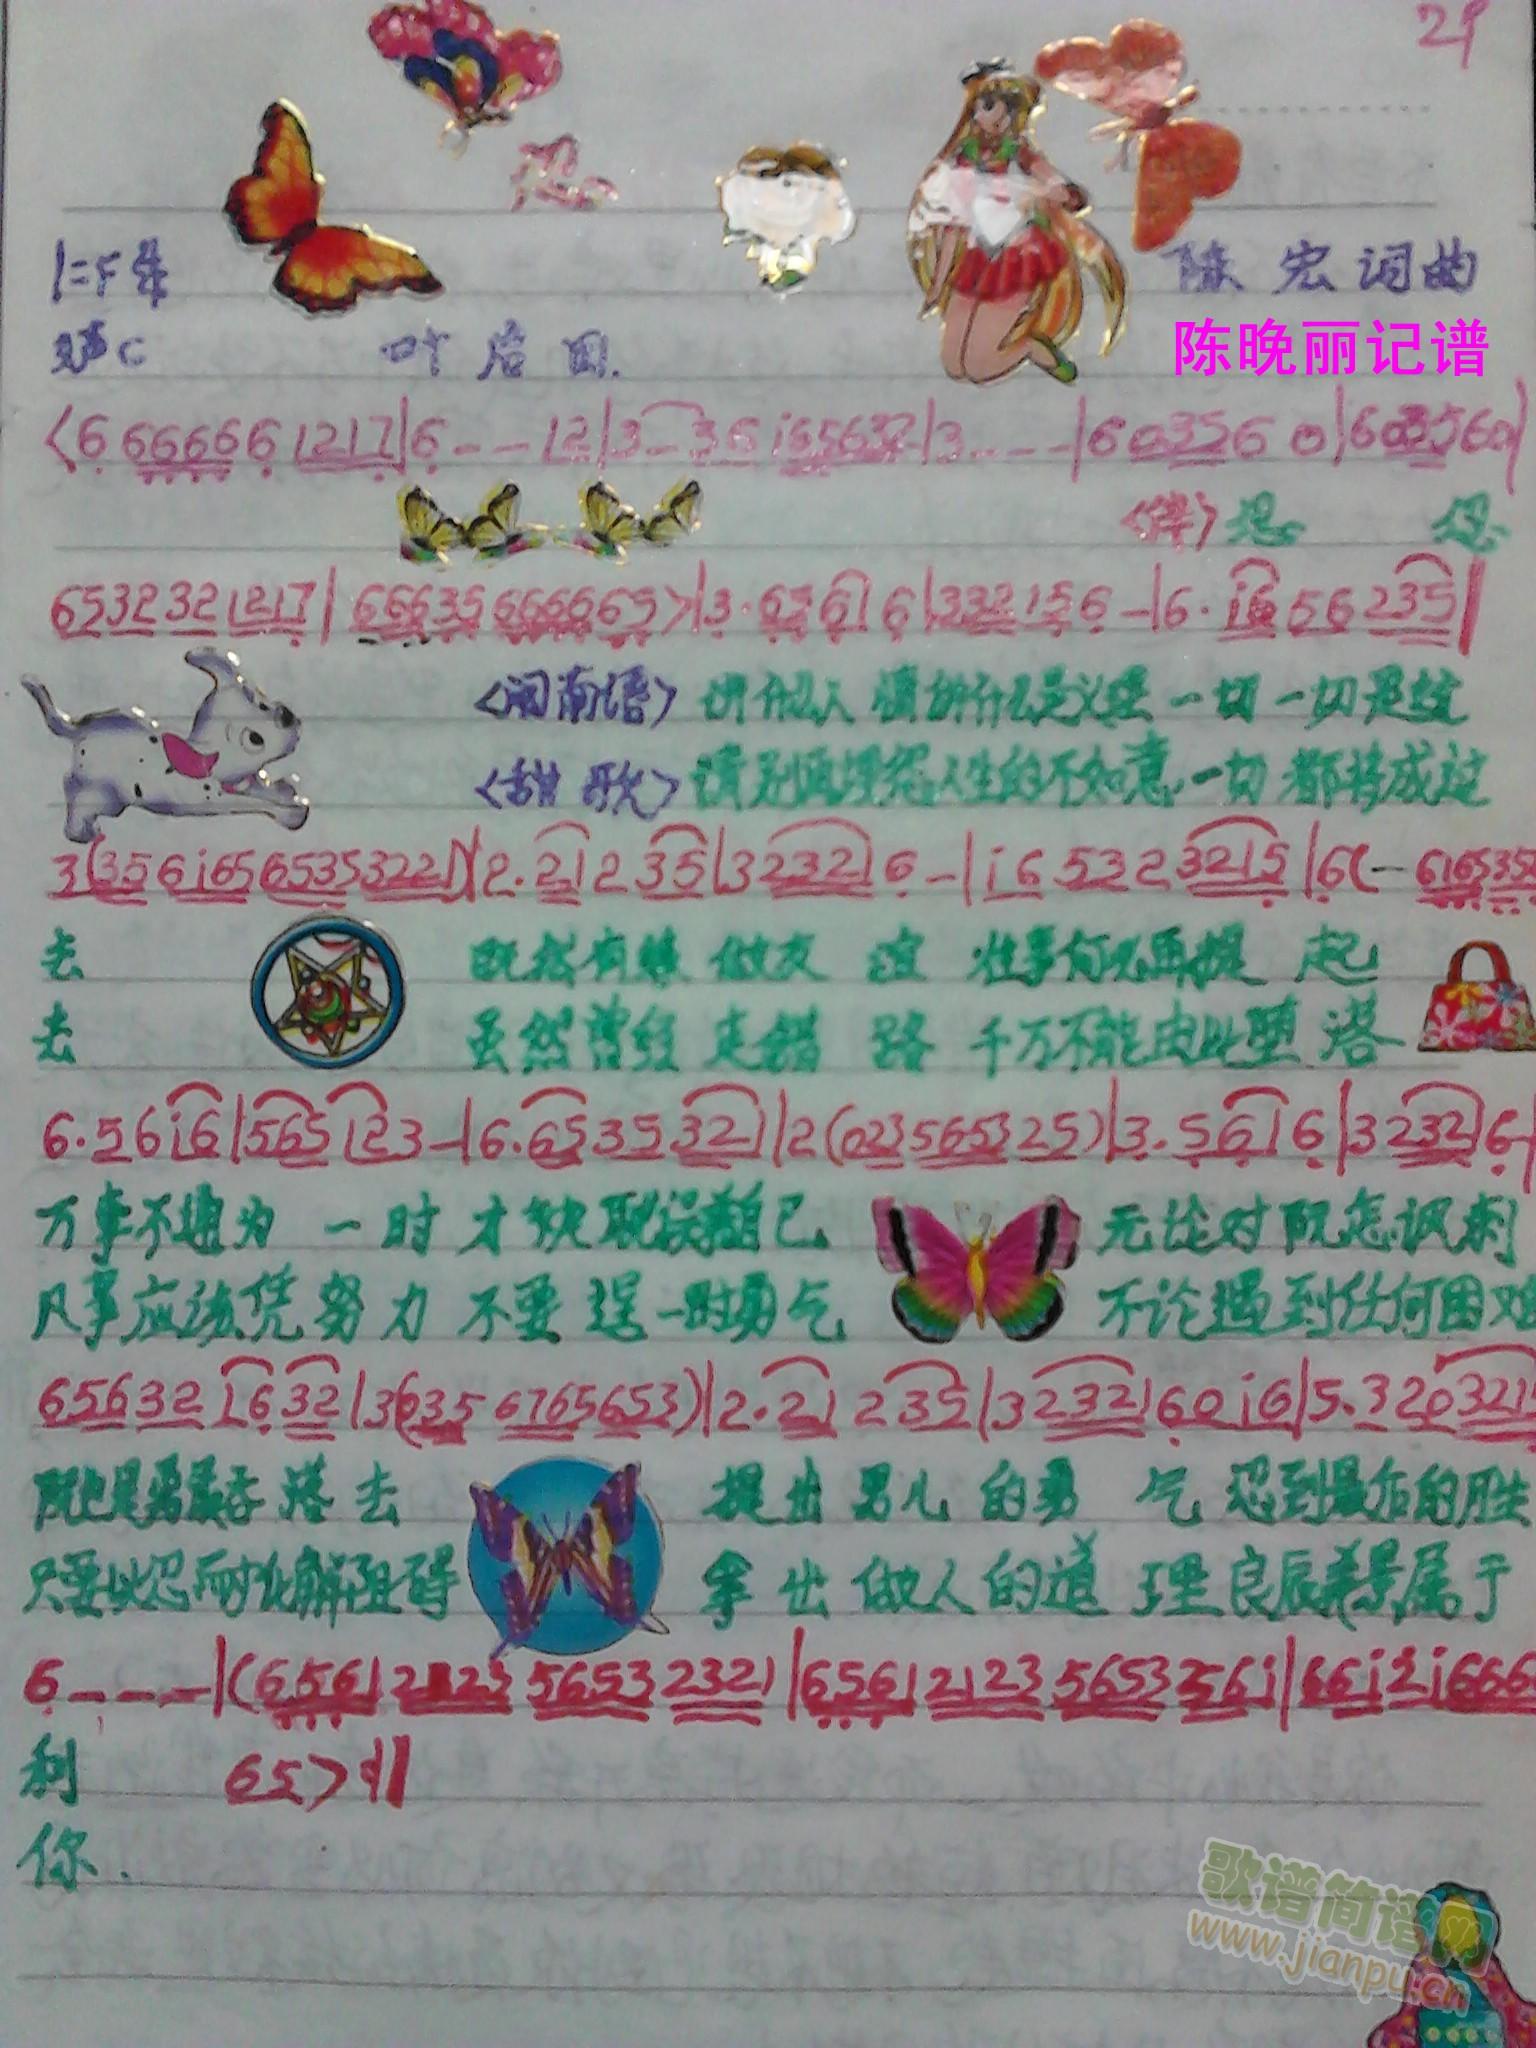 29
忍
1=F 4/4
陈宏词曲
叶启田.
陈晚丽记谱
<6 66666 1217|6--12|3-36 i65637-|3---|603560|603560|
<伴>忍 忍
6532321217|66635666665>|3·65616|332156-|6·i656235|
<闽南语> 讲什么人情讲什么是义理一切一切是过
<甜歌> 请别埋怨人生的不如意一切都将成过
3(356i6565353221)|2·21235|323216-|i653233215|6(-6165353
去 既然有缘做友谊 往事何必再提起
去 虽然曾经走错路 千万不能由此堕落
6·56i6|565123-|6·6535321|2(02356532 25)|3·5616|323216-
万事不通为一时才能耽误着自己 无论对阮怎讽刺
凡事应该凭努力不要逞一时勇气 不论遇到任何困难
6563216 32|3(6356765653)|2·21235|3232160i6|5·320321
阮也是勇敢吞落去 提出男儿的勇气忍到最后的胜
只要以忍耐化解阻碍 拿出做人的道理良辰美景属于
6---|(6561212356532321|65612123565356i|66i2i666
利 65>:‖
你.
歌谱简谱网
www.jianpu.cn